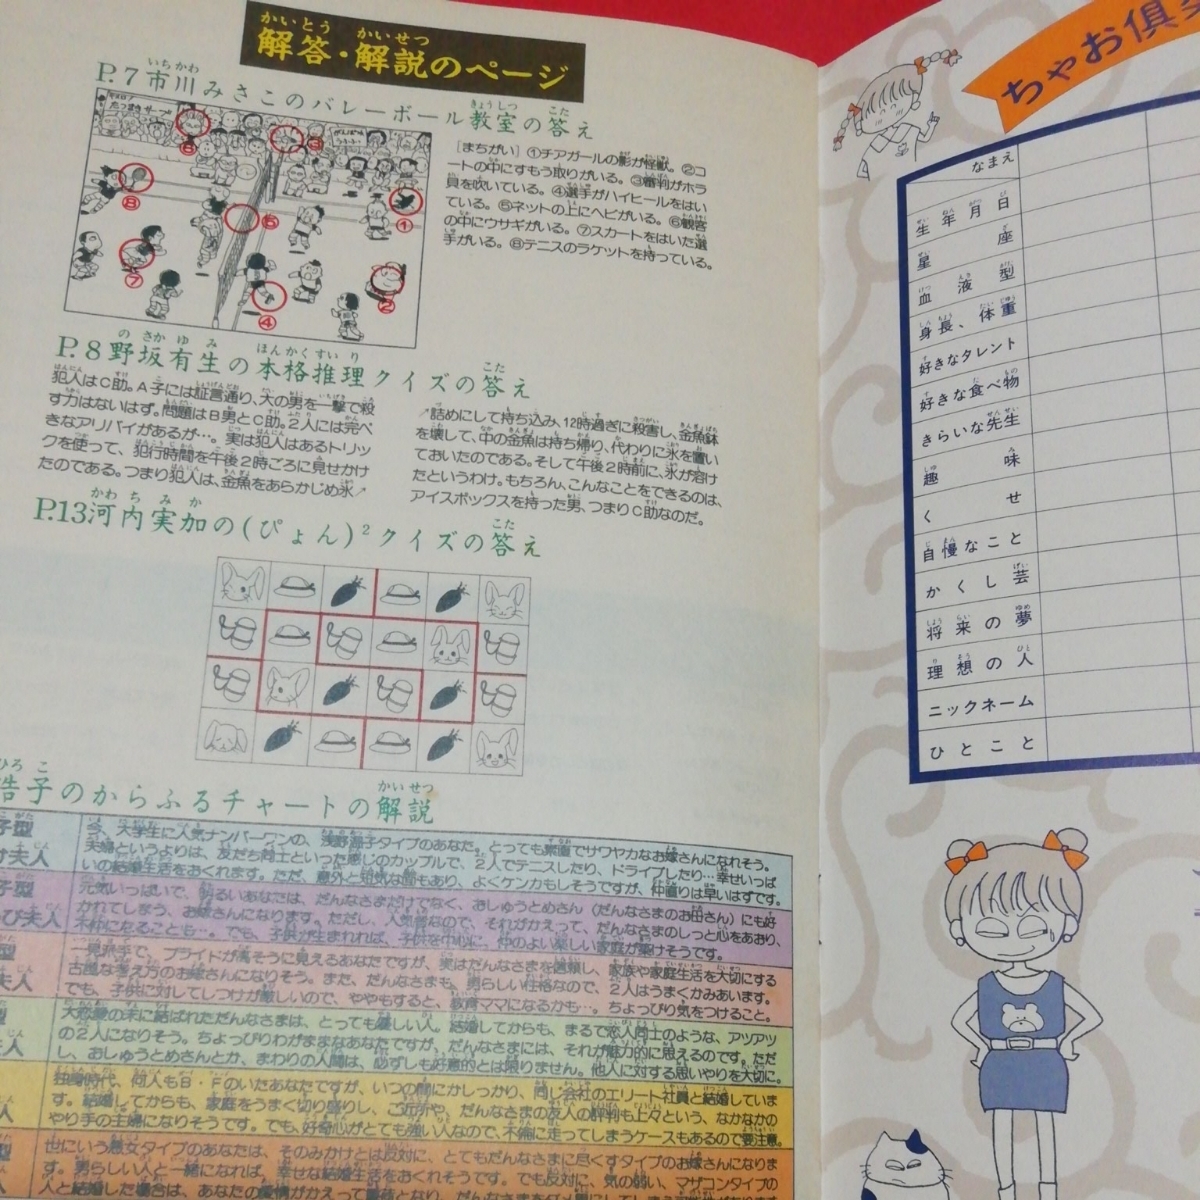 解答・解説のページ
P.7市川みさこのバレーボール教室の答え
[まちがい]①チアガールの影が怪獣。②コ
ートの中にすもう取りがいる。③審判がホラ
貝を吹いている。④選手がハイヒールをはい
ている。⑤ネットの上にヘビがいる。⑥観客
の中にウサギがいる。⑦スカートをはいた選
手がいる。⑧テニスのラケットを持っている。
P.8野坂有生の本格推理クイズの答え
犯人はC助。A子には証言通り、大の男を一撃で殺
す力はないはず。問題はB男とC助。2人には完ぺ
きなアリバイがあるが…。実は犯人はあるトリッ
クを使って、犯行時間を午後2時ごろに見せかけ
たのである。つまり犯人は、金魚をあらかじめ氷↗
↗詰めにして持ち込み、12時過ぎに殺害し、金魚鉢
を壊して、中の金魚は持ち帰り、代わりに氷を置い
ておいたのである。そして午後2時前に、氷が溶け
たというわけ。もちろん、こんなことをできるのは、
アイスボックスを持った男、つまりC助なのだ。
P.13河内実加の(ぴょん)²クイズの答え
浩子のからふるチャートの解説
子型
夫人
今、大学生に人気ナンバーワンの、浅野温子タイプのあなた。とっても素直でサワヤカなお嫁さんになれそう。
夫婦というよりは、友だち同士といった感じのカップルで、2人でテニスしたり、ドライブしたり…幸せいっぱ
いの結婚生活をおくれます。ただ、意外と短気な面もあり、よくケンカもしそうですが、仲直りは早いはずです。
子型
び夫人
元気いっぱいで、明るいあなたは、だんなさまだけでなく、おしゅうとめさん(だんなさまのお母さん)にも好
かれてしまう、お嫁さんになります。ただし、人気者なので、それがかえって、だんなさまのしっと心をあおり、
不仲になることも…。でも、子供が生まれれば、子供を中心に、仲のよい楽しい家庭が築けそうです。
型
夫人
一見派手で、プライドが高そうに見えるあなたですが、実はだんなさまを信頼し、家族や家庭生活を大切にする
古風な考え方のお嫁さんになりそう。また、だんなさまも、男らしい性格なので、2人はうまくかみあいます。
でも、子供に対してしつけが厳しいので、ややもすると、教育ママになるかも…。ちょっぴり気をつけること。
型
夫人
大恋愛の末に結ばれただんなさまは、とっても優しい人。結婚してからも、まるで恋人同士のような、アツアツ
の2人になりそう。ちょっぴりわがままなあなたですが、だんなさまには、それが魅力的に思えるのです。ただ
し、おしゅうとめさんとか、まわりの人間は、必ずしも好意的とは限りません。他人に対する思いやりを大切に。
人
独身時代、何人もB・Fのいたあなたですが、いつの間にかしっかり、同じ会社のエリート社員と結婚していま
す。結婚してからも、家庭をうまく切り盛りし、ご近所や、だんなさまの友人の評判も上々という、なかなかの
やり手の主婦になりそうです。でも、好奇心がとても強い人なので、不倫に走ってしまうケースもあるので要注意。
型
人
世にいう悪女タイプのあなたは、そのみかけとは反対に、とてもだんなさまに尽くすタイプのお嫁さんになりま
す。男らしい人と一緒になれば、幸せな結婚生活をおくれそうです。でも反対に、気の弱い、マザコンタイプの
人と結婚した場合は、あなたの愛情がかえって
ちゃお倶
なまえ
生年月日
星座
血液型
身長、体重
好きなタレント
好きな食べ物
きらいな先生
趣味
くせ
自慢なこと
かくし芸
将来の夢
理想の人
ニックネーム
ひとこと